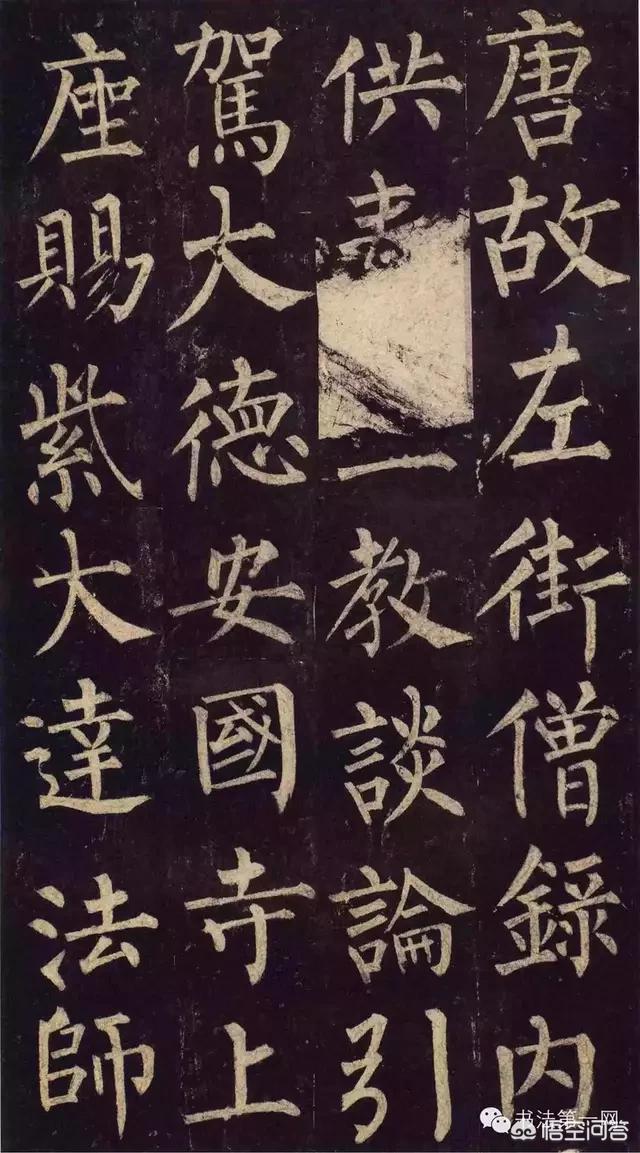 唐故左街僧錄內
供教談論引
駕大德安國寺上
座賜紫大達法師
书法第一网
悟空问答